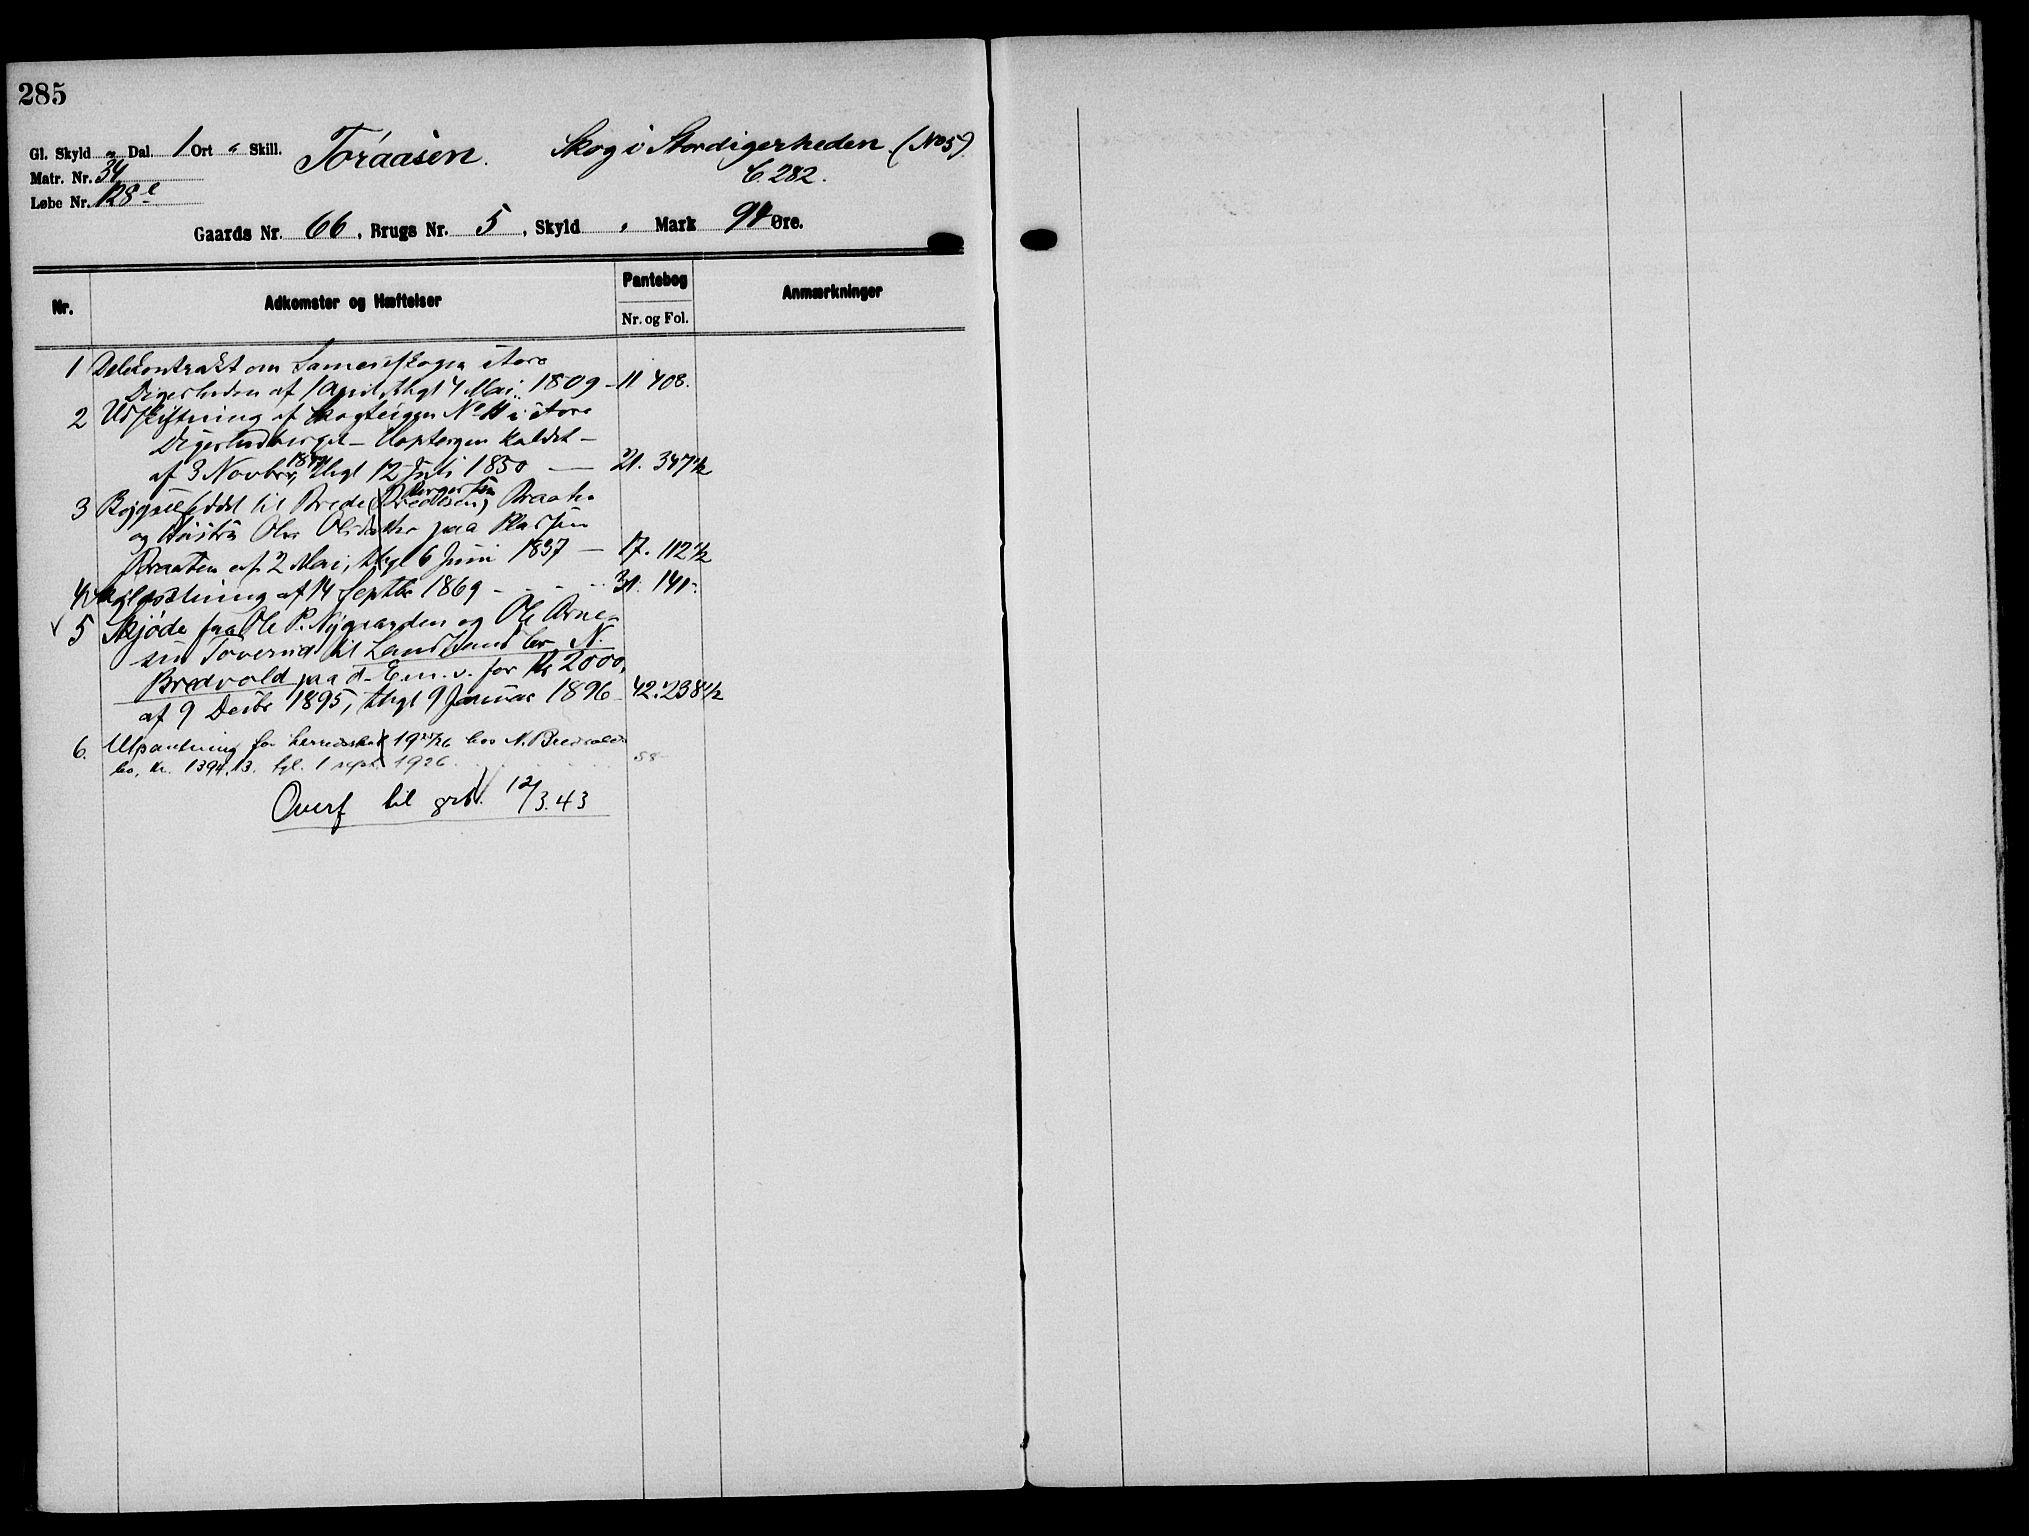 285
Gl. Skyld " Dal. 1 Ort " Skill. Toraasen. Skog i Stordigerheden. (No 5)
Matr. Nr. 34 C. 282.
Løbe Nr. 128 e
Gaards Nr. 66, Brugs Nr. 5, Skyld " Mark 94 Øre.
Nr. Adkomster og Hæftelser Pantebog Anmærkninger
Nr. og Fol.
1 Delekontrakt om Sameieskogen store
Digerheden af 1 April, thgl 4 Mai 1809 - 11 408.
2 Udskiftning af Skogteigen No 11 i store
Digerhedberget - kaldet -
af 3 Novber, thgl 12 Juli 1850 — 21. 347 1/2
3 Bøgselseddel til Brede (Bredesen) Braaten
og Hustru Olea Olsdatter paa Pladsen
Braaten af 2 Mai, thgl 6 Juni 1837 — 17. 112 1/2
4 af 14 Septbr 1869 - 31. 141.
5 Skjøde fra Ole P. Nygaarden og Ole Arne-
sen Toverud til Landhandler N.
Bredvold paa d. E. m. v. for Kr 2000,
af 9 Decbr 1895, thgl 9 Januar 1896 42. 238 1/2
6. Utpantning for herredsskat 1925/26 hos N. Bredvolds
bo, kr. 1394.13. tgl. 1 sept. 1926. 58
Overf til grb. 12/3.43